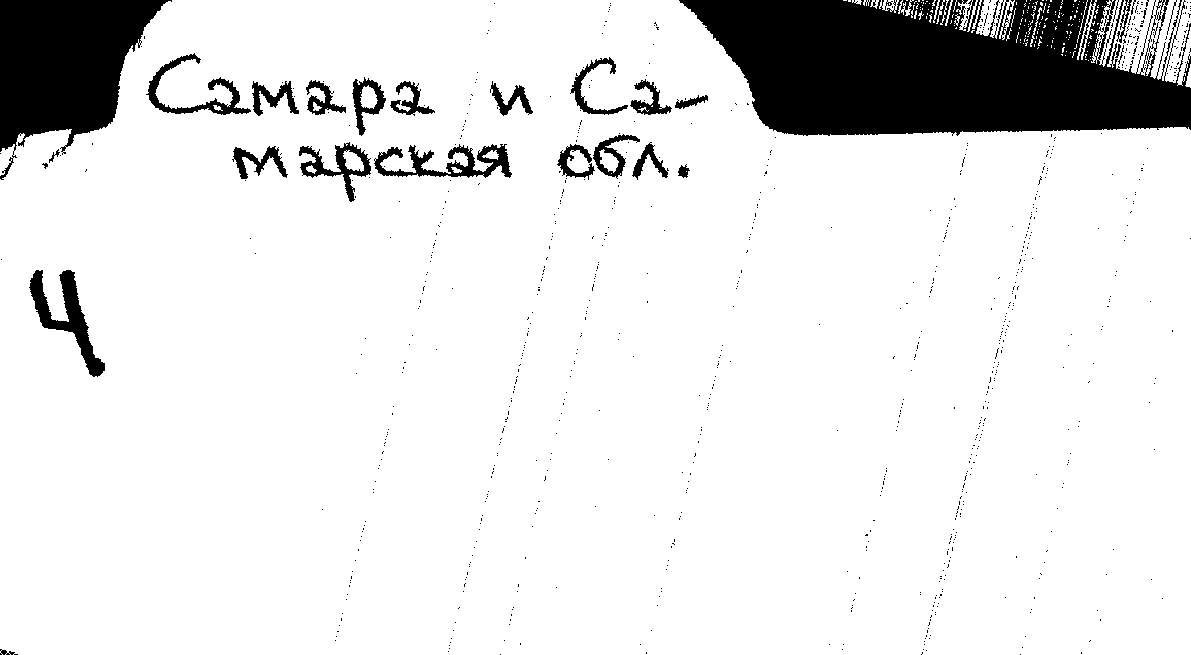 Самара и Са-
марская обл.
4